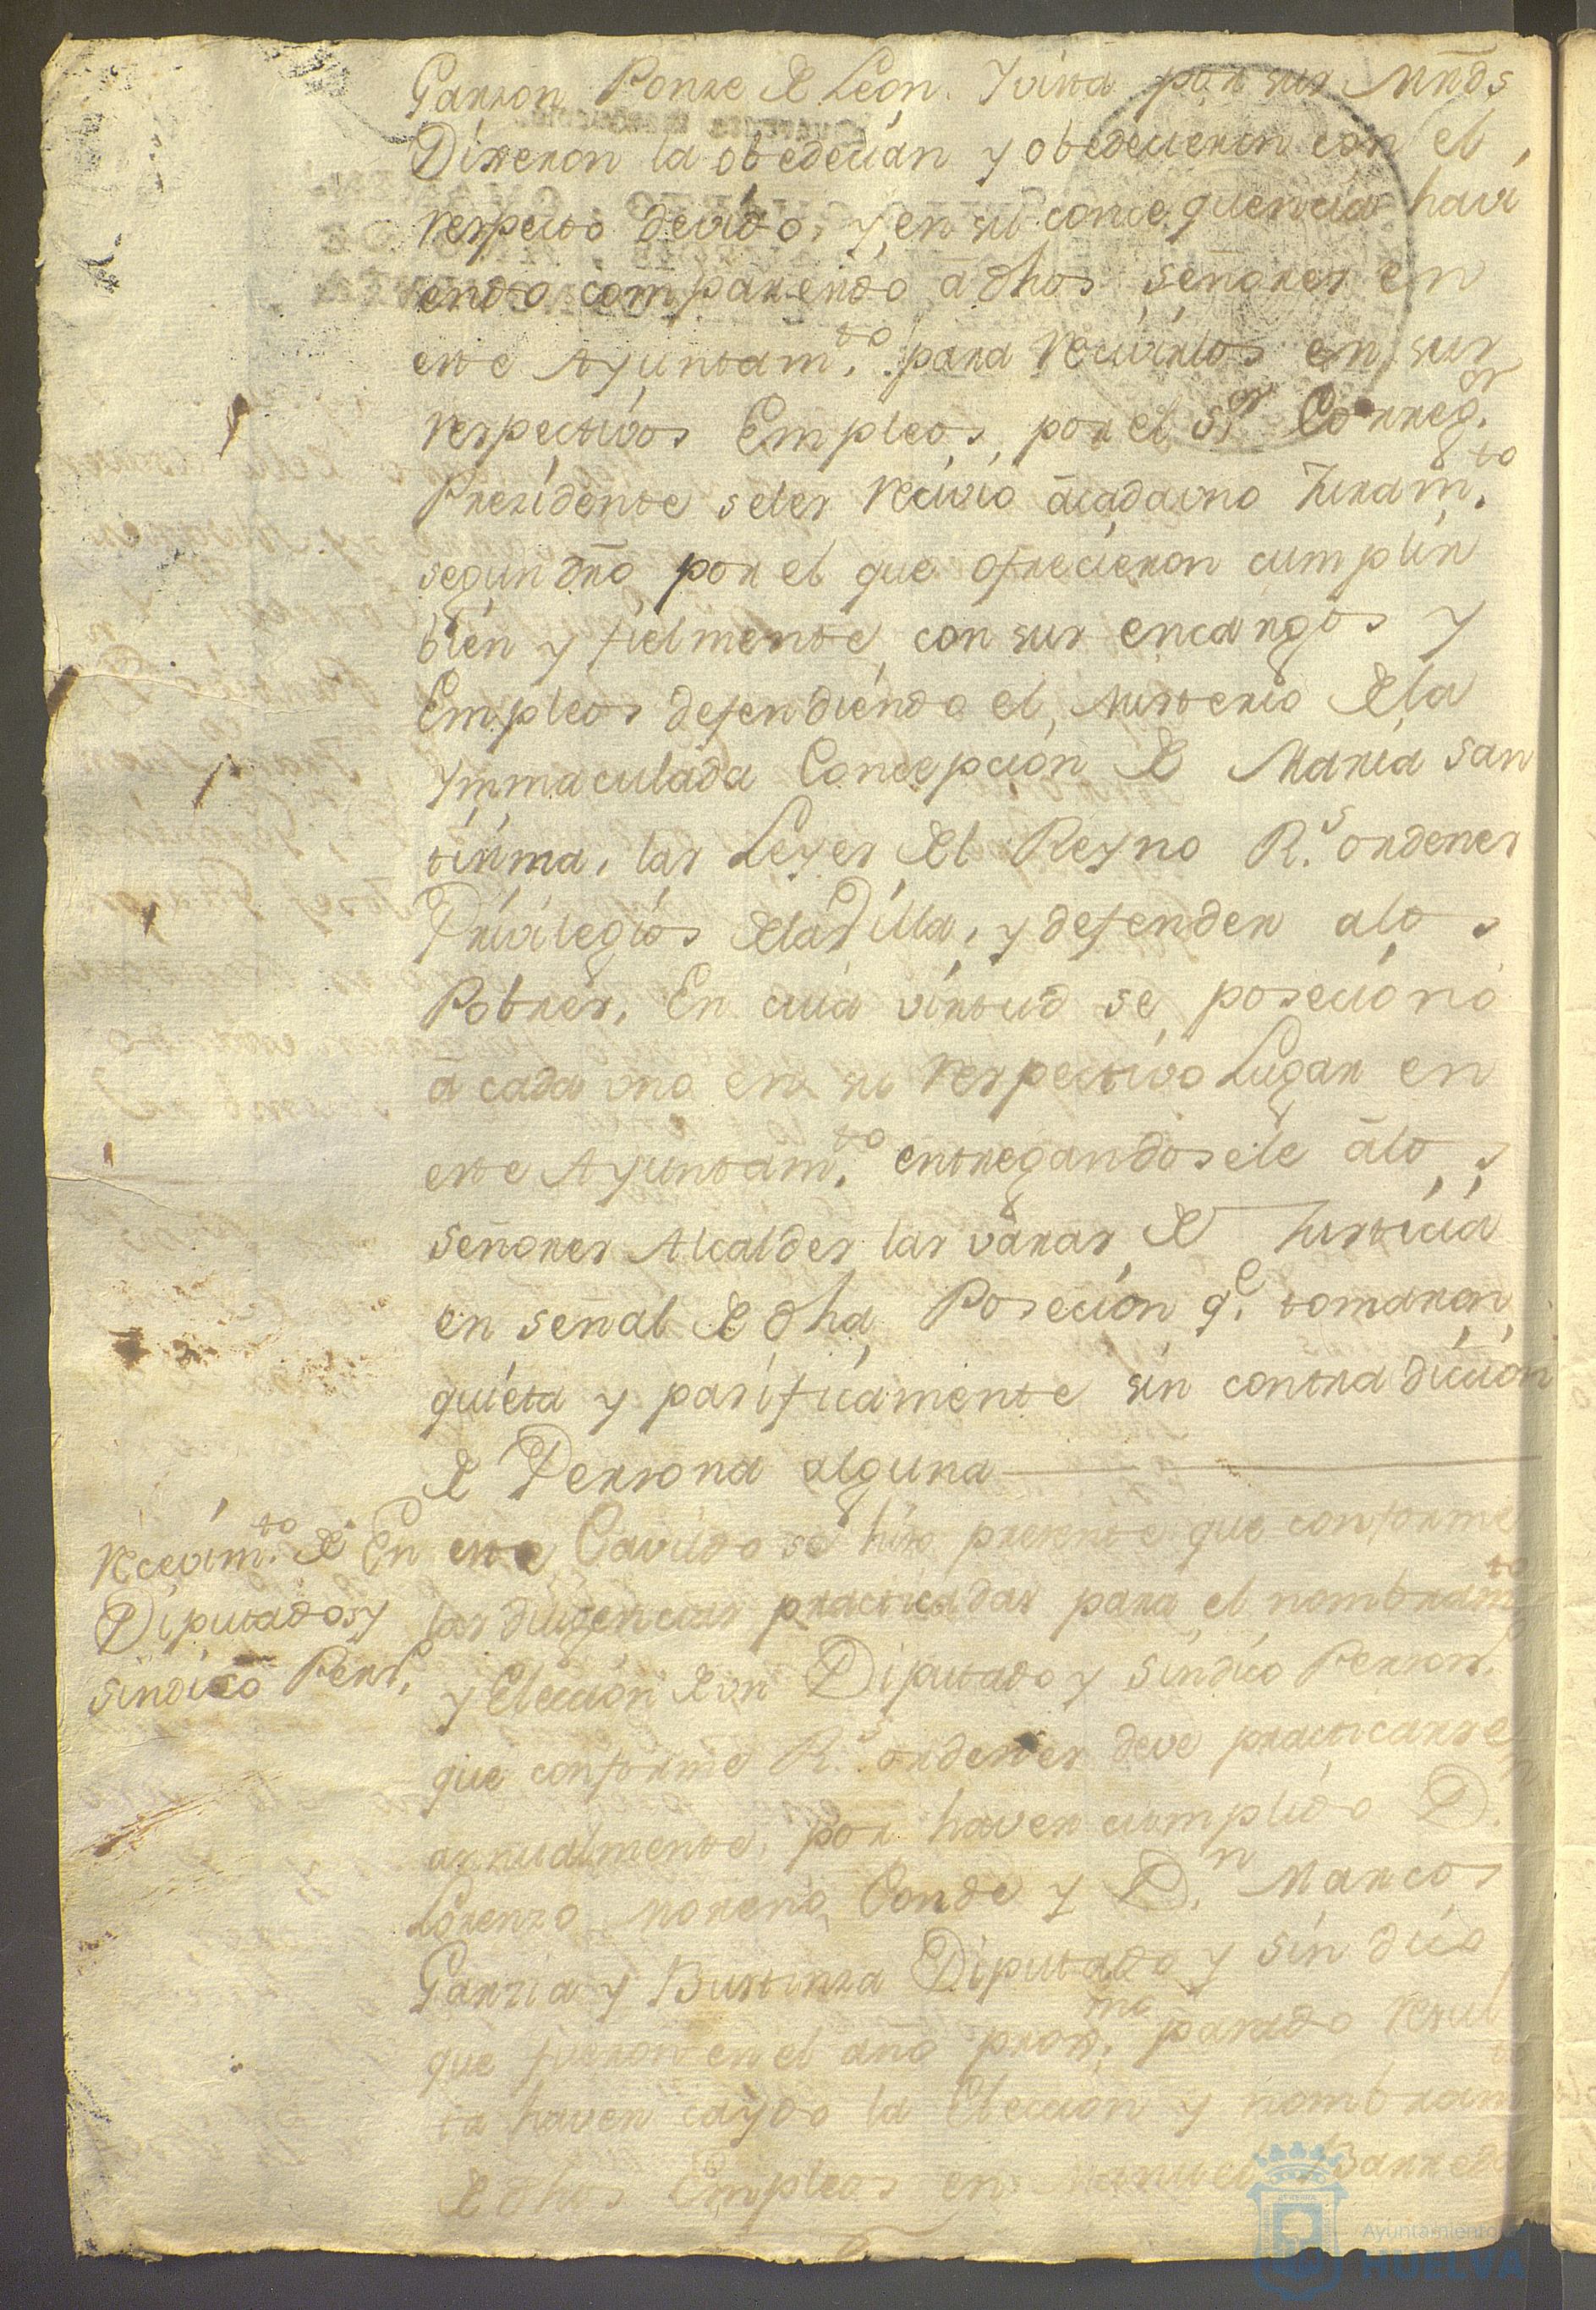 Garzon Ponze de León. Y vista por sus Mrds
Dixeron la obedecian y obedecieron con el
respecto devido, y en su concequencia havi
endo comparendo a dhos señores en
este Ayuntamto. para recivirlos en sus
respectivos Empleos, por el Sor. Corregor.
Presidente seles recivió ácadauno Juramto.
segun dro por el que ofrecieron cumplir
bien y fielmente con sus encargos y
Empleos defendiendo el Misterio de la
Ymmaculada Concepción de Maria San
tisima, las Leyes del Reyno Rs. ordenes
Privilegios de la Villa, y defender alos
Pobres, En cuia virtud se posecionó
á cada uno en su respectivo Lugar en
este Ayuntamto. entregandosele álos
señores Alcaldes las varas de Justicia
en señal de dha Poseción qe. tomaron
quieta y pasificamente sin contradiccion
de Persona alguna
Recevimto. de
Diputados y
Sindico Persl.
En este Cavildo se hizo presente que conforme
las diligencias practicadas para el nombramto
y Elección de un Diputado y Sindico Personl.
que conforme Rs. ordenes deve practicarse
annualmente, por haver cumplido Dn.
Lorenzo Moreno Conde y Dn. Marcos
Garzia y Bustinza Diputado y Sindico
que fueron en el año proxmo. pasado resul
ta haver caydo la Elección y nombramto
de dhos Empleos en Manuel Barreda
Ayuntamiento de
HUELVA